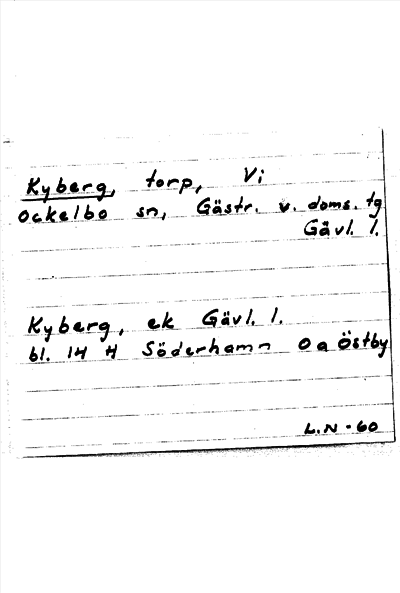 Kyberg, torp, Vi
Ockelbo sn, Gästr. v. doms. tg
Gävl. l.
Kyberg, ek Gävl. l.
bl. 14 H Söderhamn O a Östby
L.N-60